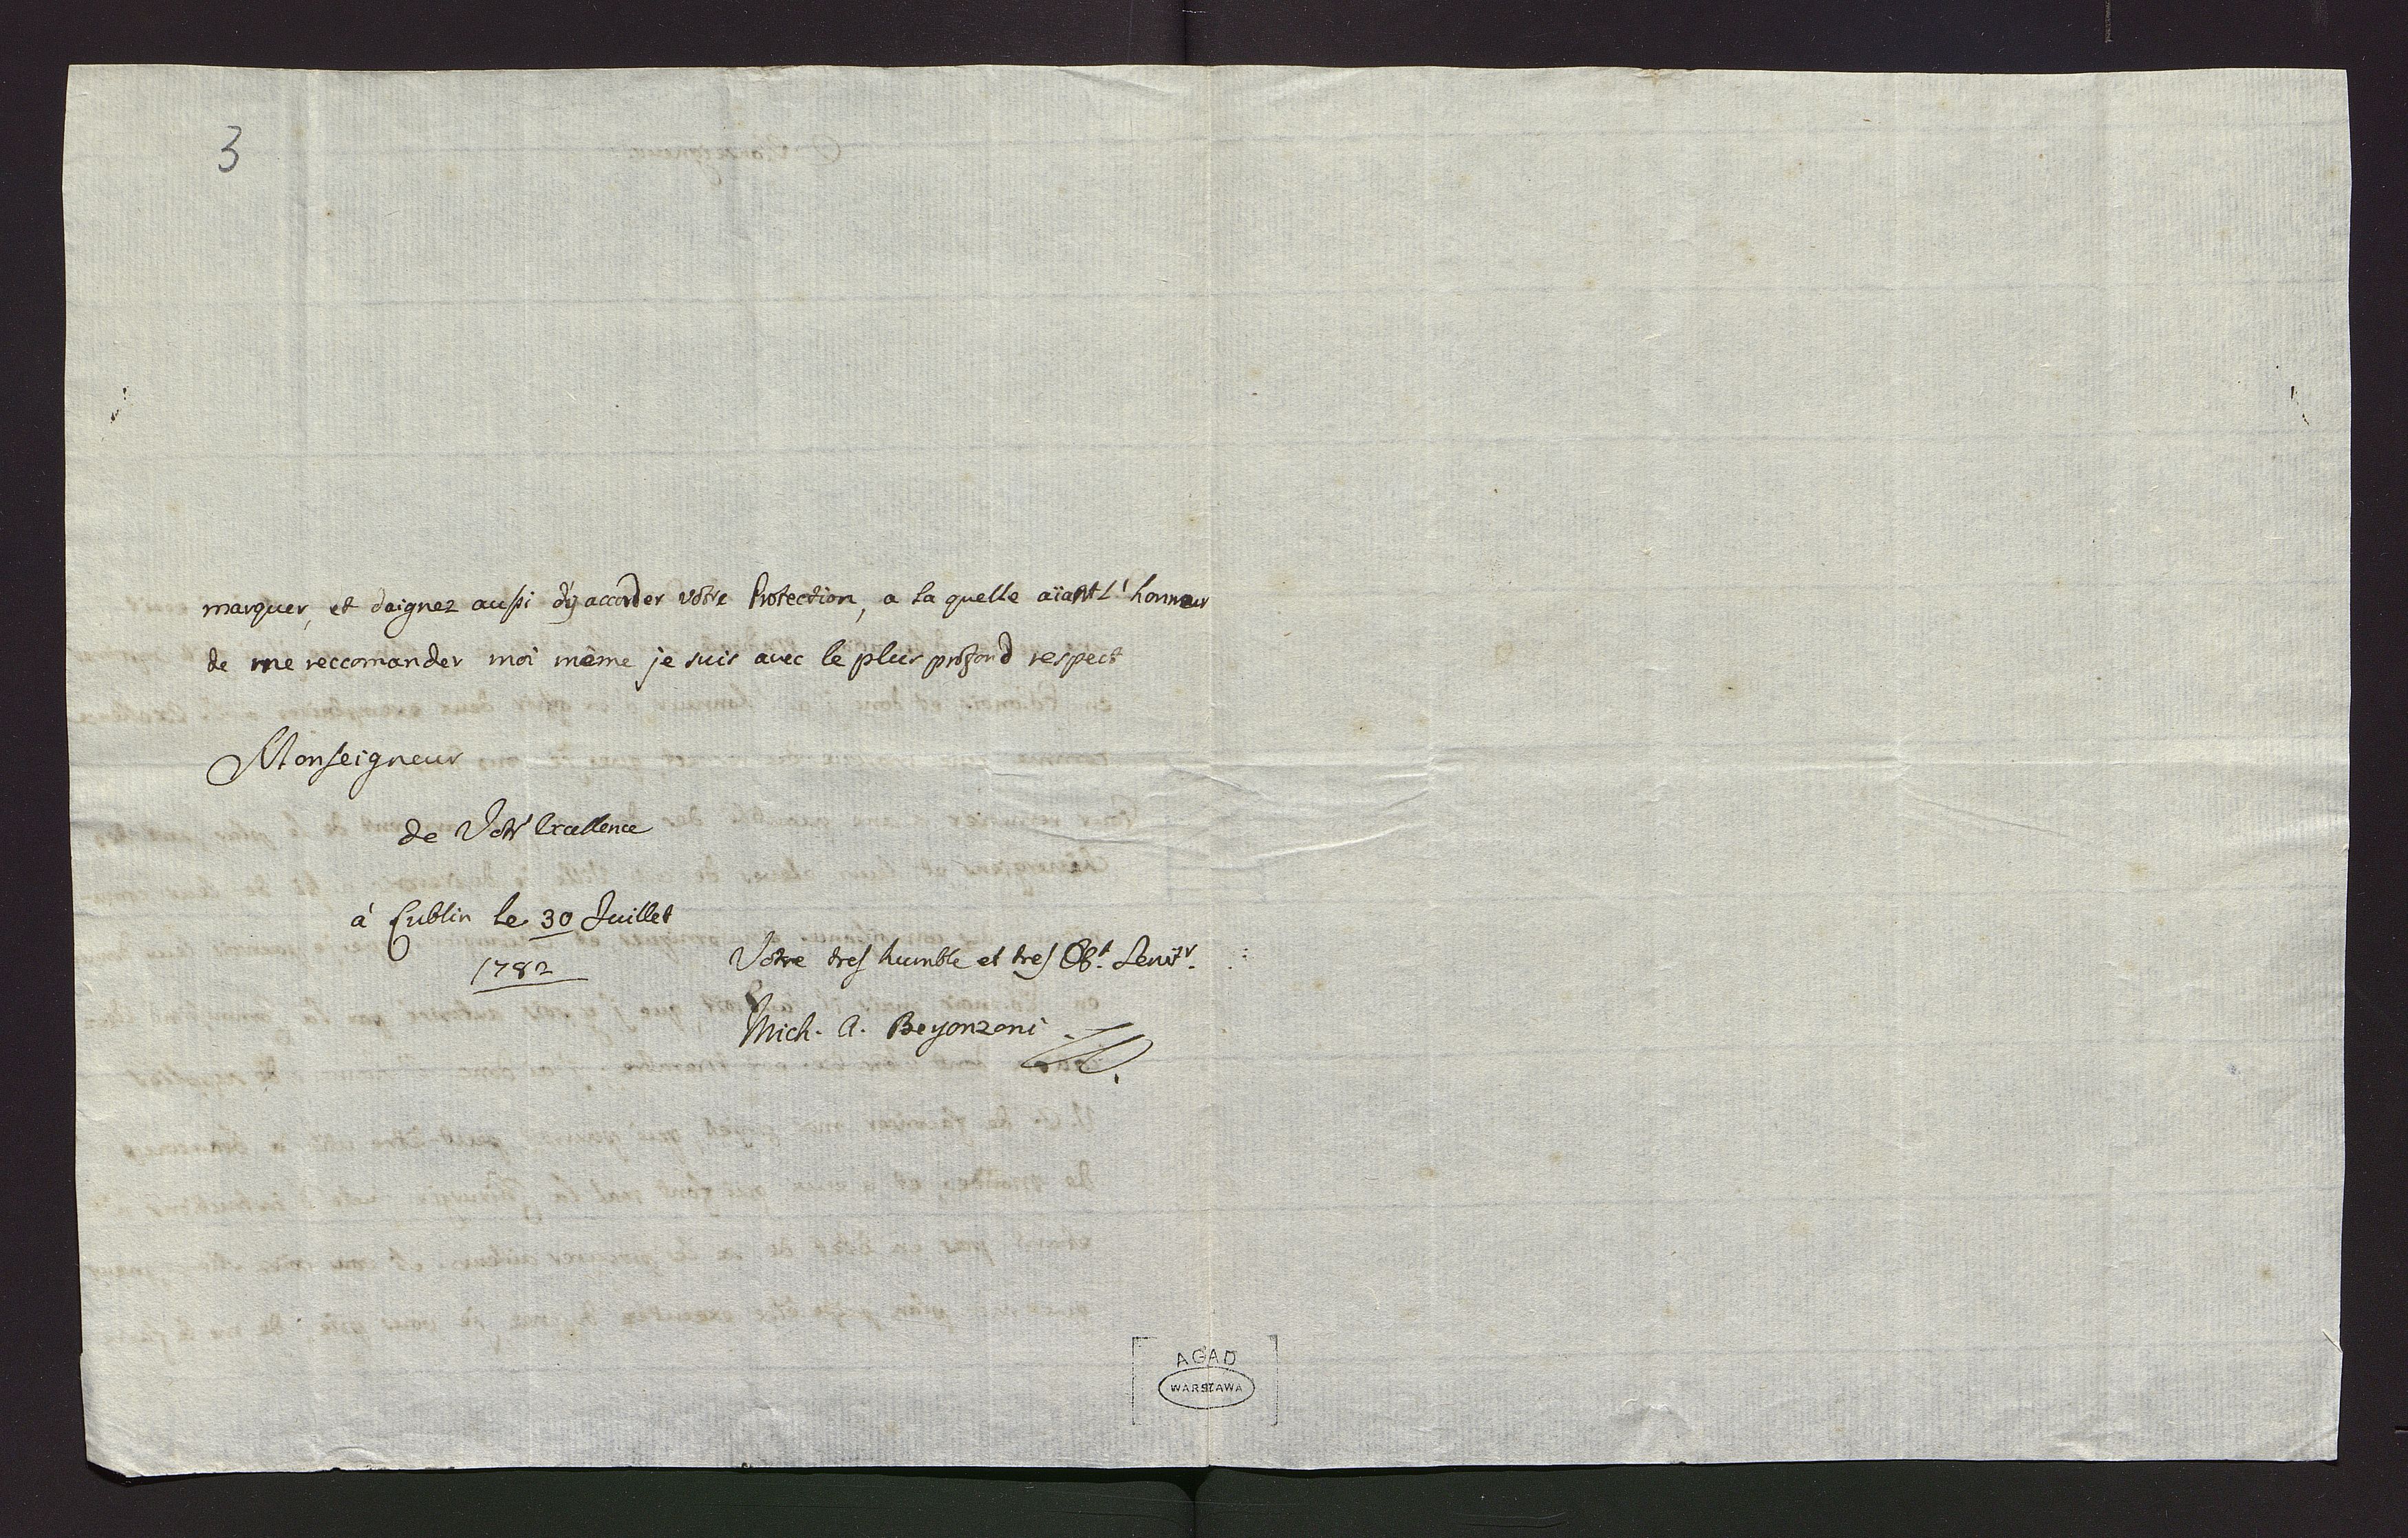 3
marquer, et daignez aussi d'y accorder vôtre Protection, a la quelle aïant l'honneur
de me reccomander moi même je suis avec le plus profond respect
Monseigneur
de Votr' Excellence
à Lublin le 30 Juillet
1782
Votre tres humble et tres Obt. Servitr.
Mich. A. Beyonzoni
AGAD
WARSZAWA